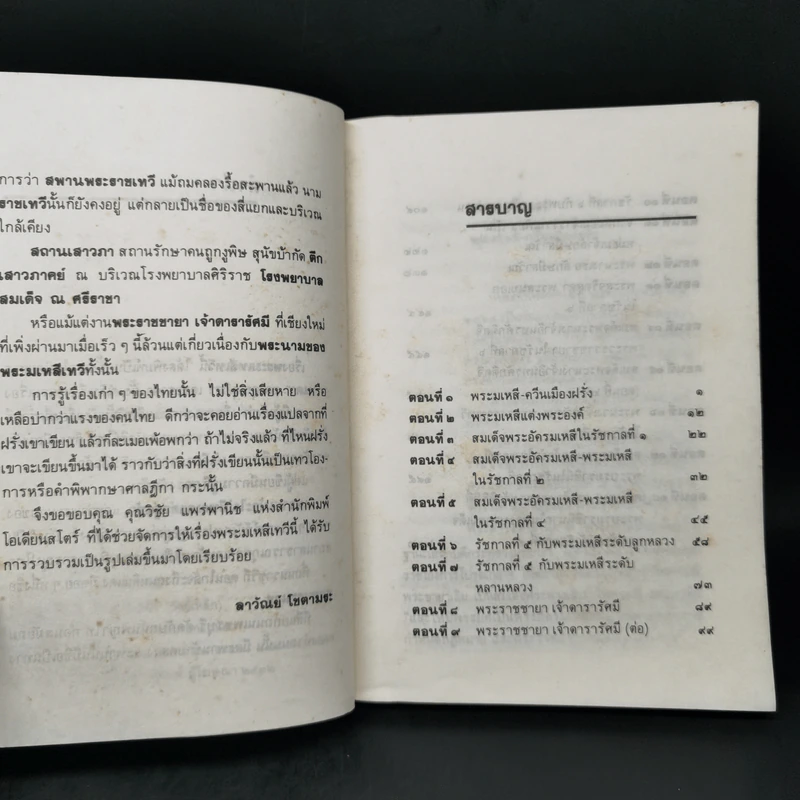 การว่า สพานพระราชเทวี แม้ถมคลองรื้อสะพานแล้ว นาม
ราชเทวีนั้นก็ยังคงอยู่ แต่กลายเป็นชื่อของสี่แยกและบริเวณ
ใกล้เคียง
สถานเสาวภา สถานรักษาคนถูกงูพิษ สุนัขบ้ากัด ตึก
เสาวภาคย์ ณ บริเวณโรงพยาบาลศิริราช โรงพยาบาล
สมเด็จ ณ ศรีราชา
หรือแม้แต่งานพระราชชายา เจ้าดารารัศมี ที่เชียงใหม่
ที่เพิ่งผ่านมาเมื่อเร็ว ๆ นี้ล้วนแต่เกี่ยวเนื่องกับพระนามของ
พระมเหสีเทวีทั้งนั้น
การรู้เรื่องเก่า ๆ ของไทยนั้น ไม่ใช่สิ่งเสียหาย หรือ
เหลือบ่ากว่าแรงของคนไทย ดีกว่าจะคอยอ่านเรื่องแปลจากที่
ฝรั่งเขาเขียน แล้วก็ละเมอเพ้อพกว่า ถ้าไม่จริงแล้ว ที่ไหนฝรั่ง
เขาจะเขียนขึ้นมาได้ ราวกับว่าสิ่งที่ฝรั่งเขียนนั้นเป็นเทวโอง-
การหรือคำพิพากษาศาลฎีกา กระนั้น
จึงขอขอบคุณ คุณวิชัย แพร่พานิช แห่งสำนักพิมพ์
โอเดียนสโตร์ ที่ได้ช่วยจัดการให้เรื่องพระมเหสีเทวีนี้ ได้รับ
การรวบรวมเป็นรูปเล่มขึ้นมาโดยเรียบร้อย
ลาวัณย์ โชตามระ
สารบาญ
ตอนที่ ๑ พระมเหสี-ควีนเมืองฝรั่ง ๑
ตอนที่ ๒ พระมเหสีแต่งพระองค์ ๑๒
ตอนที่ ๓ สมเด็จพระอัครมเหสีในรัชกาลที่ ๑ ๒๒
ตอนที่ ๔ สมเด็จพระอัครมเหสี-พระมเหสี
ในรัชกาลที่ ๒ ๓๒
ตอนที่ ๕ สมเด็จพระอัครมเหสี-พระมเหสี
ในรัชกาลที่ ๔ ๔๕
ตอนที่ ๖ รัชกาลที่ ๕ กับพระมเหสีระดับลูกหลวง ๕๘
ตอนที่ ๗ รัชกาลที่ ๕ กับพระมเหสีระดับ
หลานหลวง ๗๓
ตอนที่ ๘ พระราชชายา เจ้าดารารัศมี ๘๙
ตอนที่ ๙ พระราชชายา เจ้าดารารัศมี (ต่อ) ๙๙